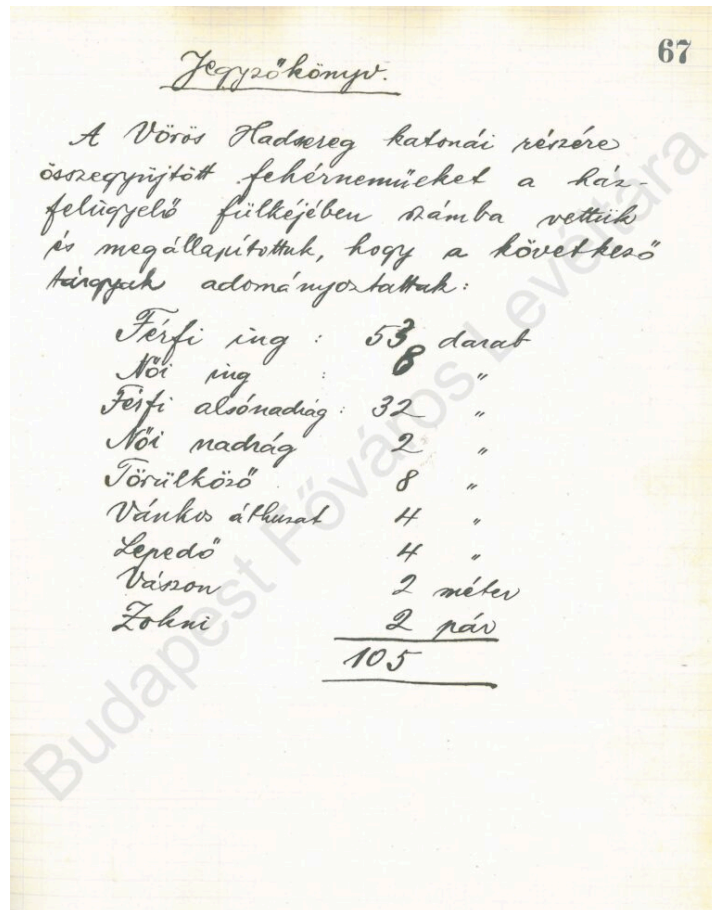 67
Jegyzőkönyv.
A Vörös Hadsereg katonái részére
összegyűjtött fehérneműeket a ház-
felügyelő fülkéjében számba vettük
és megállapítottuk, hogy a következő
tárgyak adományoztattak:
Férfi ing : 53 darab
Női ing : 8 "
Férfi alsónadrág : 32 "
Női nadrág 2 "
Törülköző 8 "
Vánkos áthuzat 4 "
Lepedő 4 "
Vászon 2 méter
Zokni 2 pár
105
Budapest Főváros Levéltára